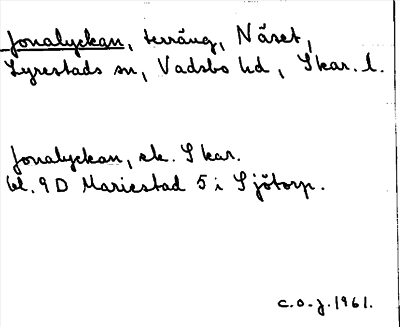 Jonalyckan, terräng, Näset,
Lyrestads sn, Vadsbo hd, Skar. l.
Jonalyckan, ek. Skar.
bl. 9D Mariestad 5 i Sjötorp.
c.o-j. 1961.